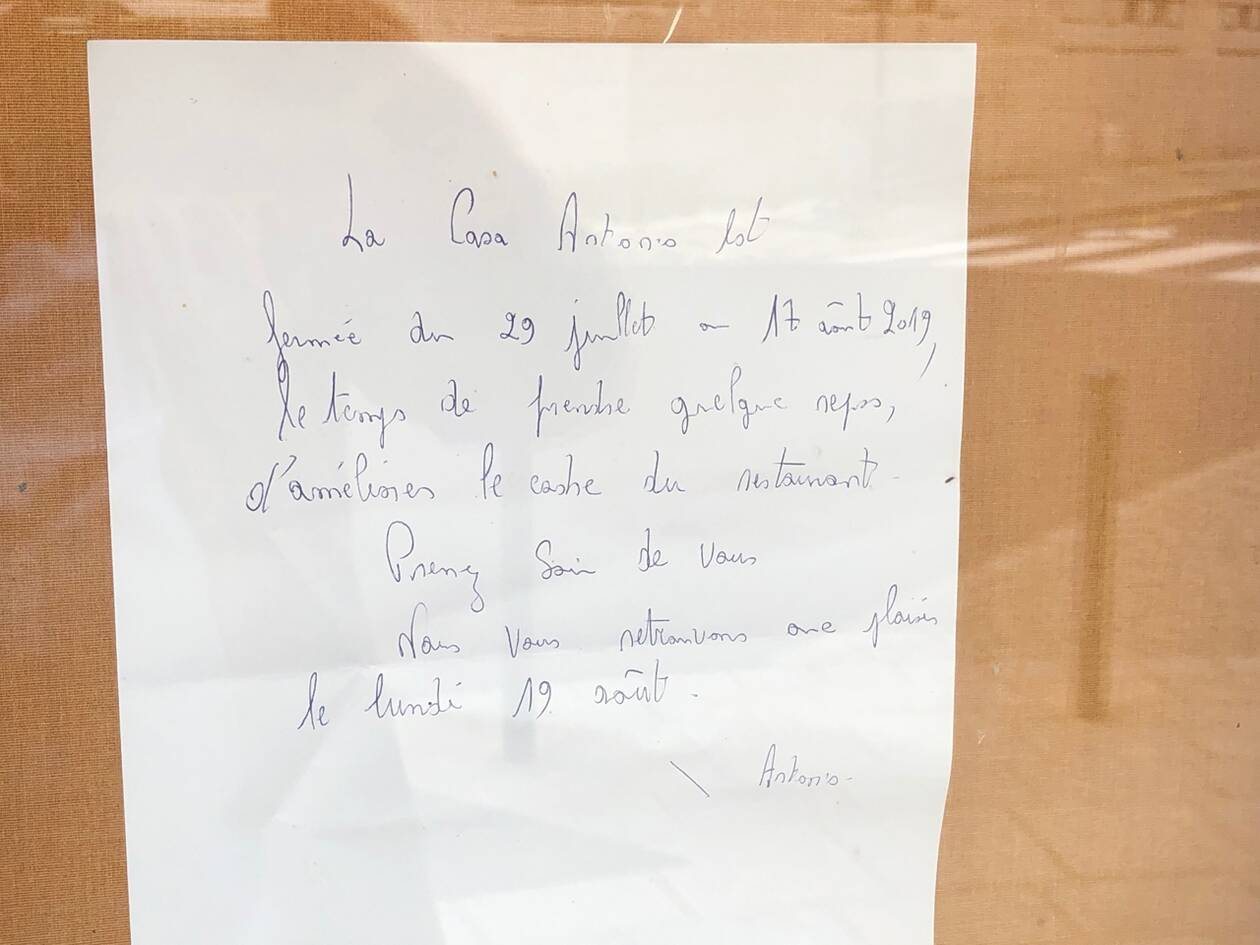 La Casa Antonio est
fermée du 29 juillet au 17 août 2019,
le temps de prendre quelque repos,
d'améliorer le cadre du restaurant.
Prenez Soin de vous
Nous vous retrouvons avec plaisir
le lundi 19 août.
Antonio.